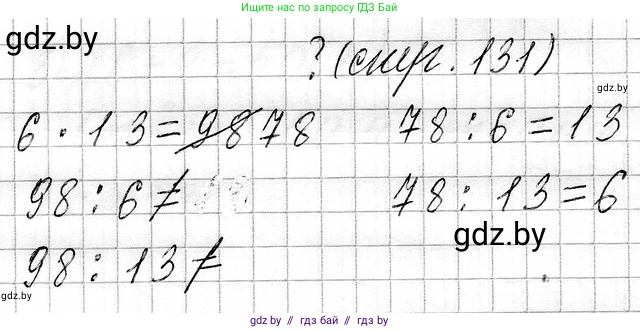 Ищите нас по запросу ГДЗ Бай
gdz.by
? (стр. 131)
gdz.by
6 · 13 = 98 78   78 : 6 = 13
98 : 6 ≠   78 : 13 = 6
gdz.by
98 : 13 ≠
gdz.by
gdz.by // гдз бай // гдз by